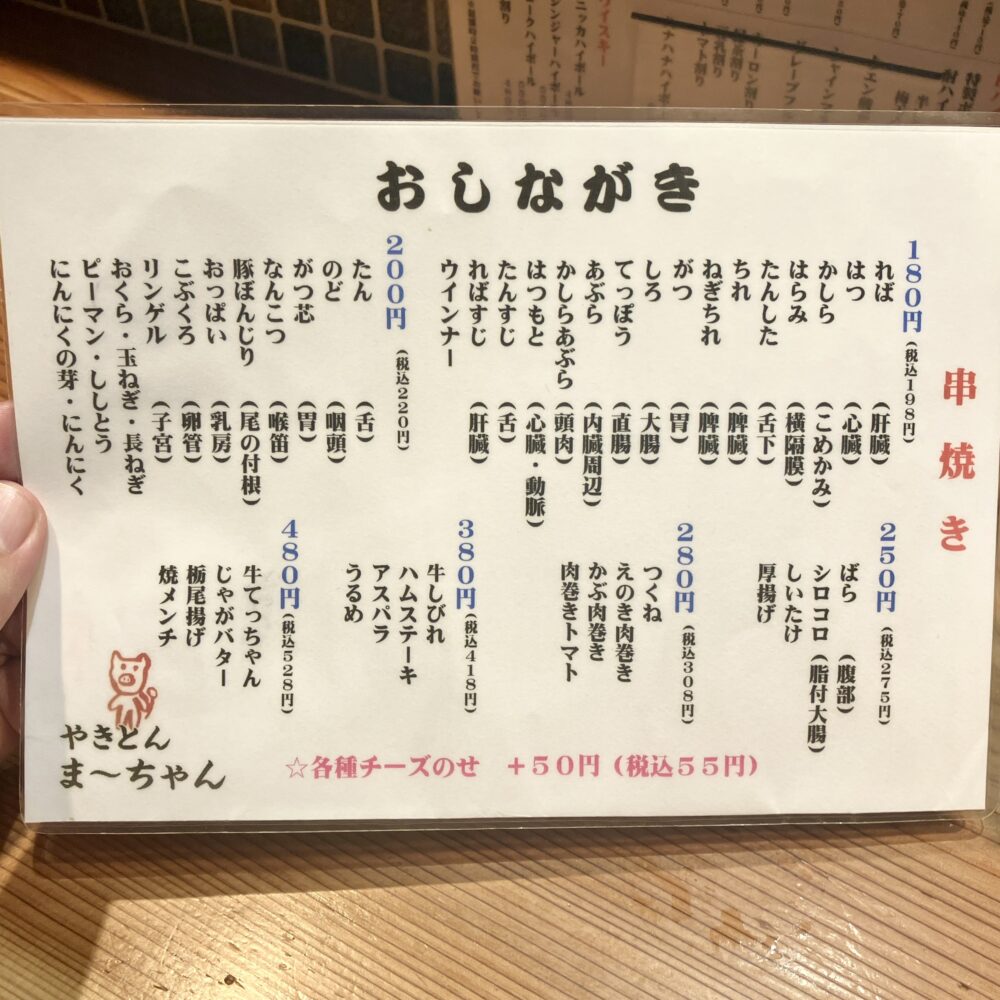 おしながき
串焼き
180円(税込198円)
れば(肝臓)
はつ(心臓)
かしら(こめかみ)
はらみ(横隔膜)
たんした(舌下)
ちれ(脾臓)
ねぎちれ(脾臓)
がつ(胃)
しろ(大腸)
てっぽう(直腸)
あぶら(内臓周辺)
かしらあぶら(頭肉)
はつもと(心臓・動脈)
たんすじ(舌)
ればすじ(肝臓)
ウインナー
200円(税込220円)
たん(舌)
のど(咽頭)
がつ芯(胃)
なんこつ(喉笛)
豚ぼんじり(尾の付根)
おっぱい(乳房)
こぶくろ(卵管)
リンゲル(子宮)
おくら・玉ねぎ・長ねぎ
ピーマン・ししとう
にんにくの芽・にんにく
250円(税込275円)
ばら(腹部)
シロコロ(脂付大腸)
しいたけ
厚揚げ
280円(税込308円)
つくね
えのき肉巻き
かぶ肉巻き
肉巻きトマト
380円(税込418円)
牛しびれ
ハムステーキ
アスパラ
うるめ
480円(税込528円)
牛てっちゃん
じゃがバター
栃尾揚げ
焼メンチ
☆各種チーズのせ +50円(税込55円)
やきとん
ま～ちゃん
ウイスキー
ニッカハイボール
ジンジャーハイボール
コークハイボール
トマト割り